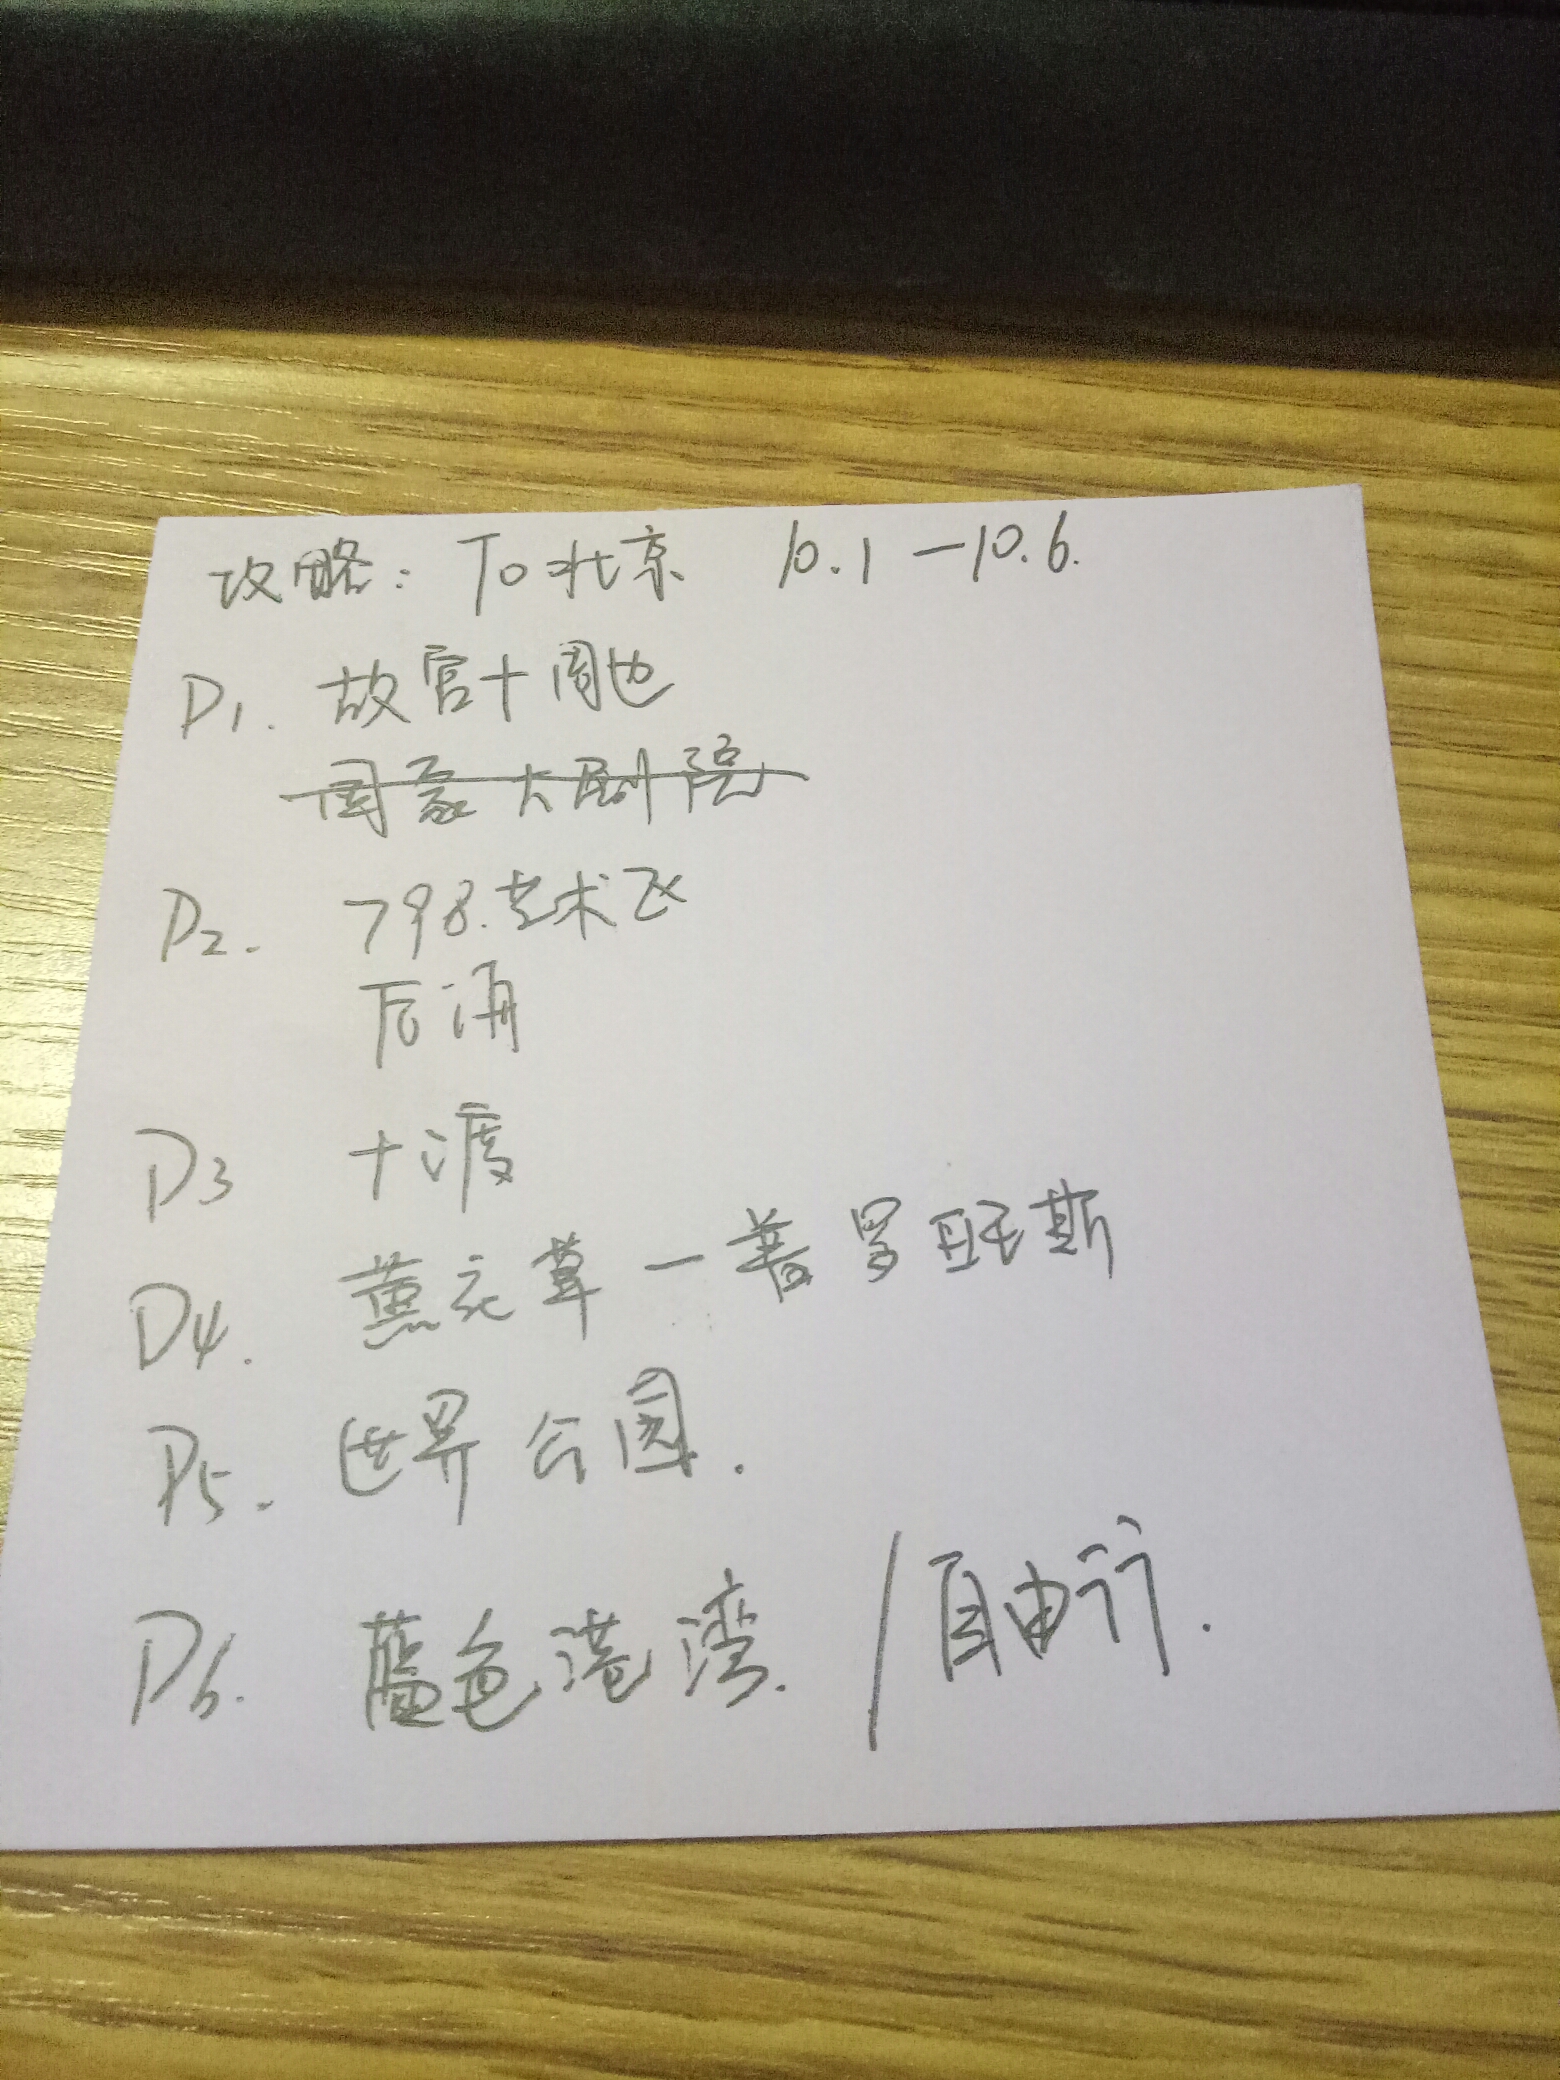 攻略：To北京 10.1－10.6.
D1. 故宫+周边
国家大剧院
D2. 798.艺术区
后海
D3 十渡
D4. 薰衣草一普罗旺斯
D5. 世界公园.
D6. 蓝色港湾. /自由行.